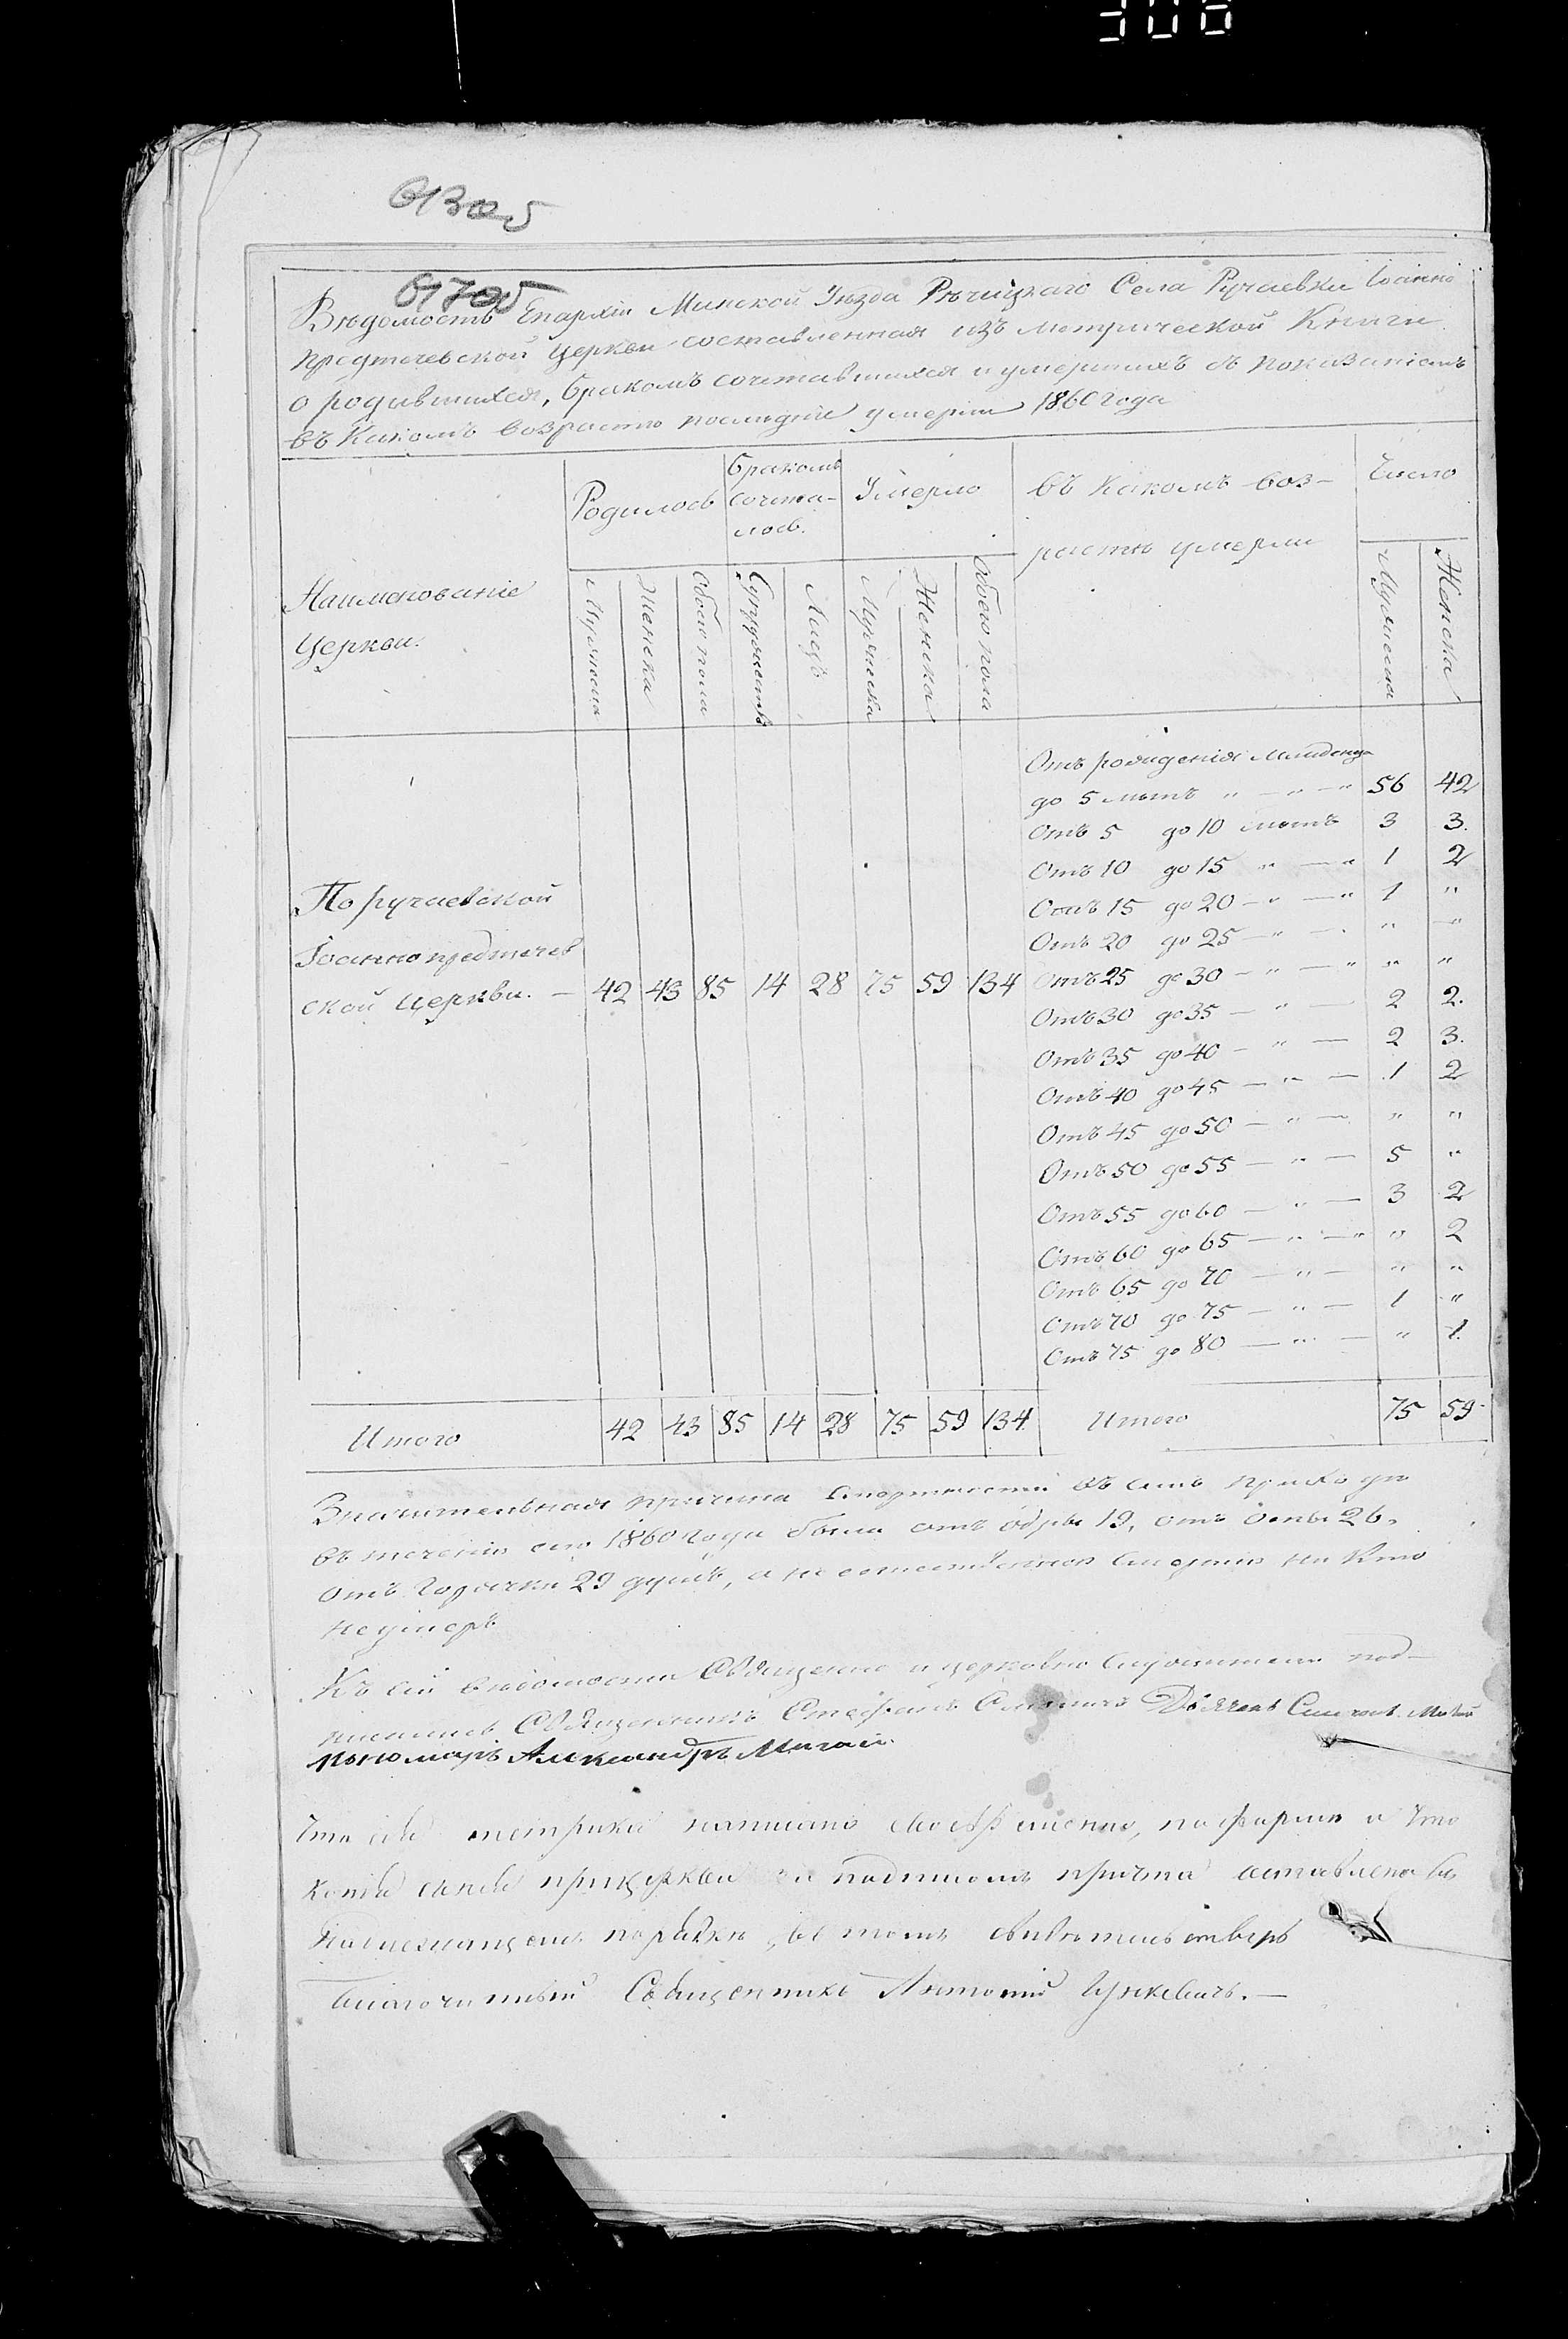 Вѣдомость Епархіи Минской Уѣзда Рѣчицкаго Села Ручаевки Іоанно
предтечевской церкви составленная изъ метрической Книги
о родившихся, бракомъ сочетавшихся и умершихъ съ показаніемъ
въ какомъ возрастѣ послѣдніе умерли 1860 года
Наименованіе
Церкви.
Родилось
Бракомъ
сочета-
лось.
Умерло
въ какомъ воз-
растѣ умерли
Число
Мужеска
Женска
Обоего пола
Супружествъ
Лицъ
Мужеска
Женска
Обоего пола
Мужеска
Женска
По ручаевской
Іоаннопредтечев
ской церкви. — 42 43 85 14 28 75 59 134
Отъ рожденія младенца
до 5 лѣтъ „ — „ — „ 56 42
Отъ 5 до 10 лѣтъ 3 3.
Отъ 10 до 15 „ — „ 1 2
Отъ 15 до 20 — „ — „ 1 „
Отъ 20 до 25 — „ — „ „
Отъ 25 до 30 — „ — „ „ „
Отъ 30 до 35 — „ — 2 2.
Отъ 35 до 40 — „ — 2 3.
Отъ 40 до 45 — „ — 1 2
Отъ 45 до 50 — „ — „ „
Отъ 50 до 55 — „ — 5 „
Отъ 55 до 60 — „ — 3 2
Отъ 60 до 65 — „ — „ „ 2
Отъ 65 до 70 — „ — „ „
Отъ 70 до 75 — „ — 1 „
Отъ 75 до 80 — „ — „ 1.
Итого 42 43 85 14 28 75 59 134 Итого 75 59
Значительная причина смертности въ семъ приходѣ
въ теченіи сего 1860 года была отъ 19, отъ оспы 26,
отъ Горячки 29 душъ, а не естественною смертію ни кто
не умеръ
Къ сей вѣдомости Священно и церковно служители под-
писались Священникъ Стефанъ Дьячекъ
пономарь Александръ Мигай.
Что сія метрика написана по формѣ и что
копія съ ней при церкви за подписомъ причта оставлена въ
надлежащемъ порядкѣ, въ томъ свидѣтельствуетъ
Благочинный Священникъ Антоній